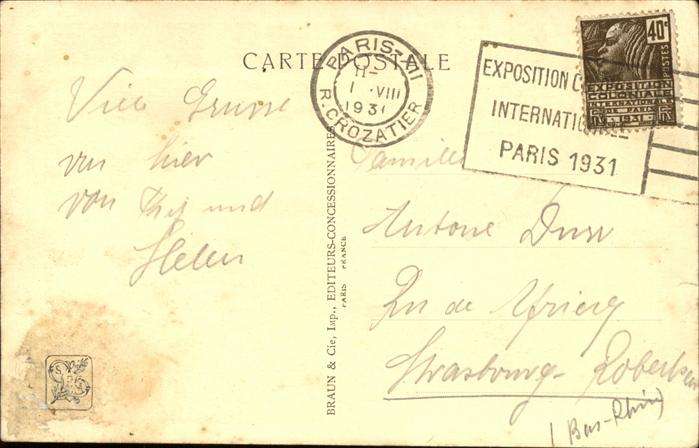 CARTE POSTALE
PARIS-XII
R. CROZATIER
1 VIII
1931
EXPOSITION
INTERNATIONALE
PARIS 1931
40c
POSTES
EXPOSITION
COLONIALE
INTERNATIONALE
DE PARIS
1931
Viele Grüsse
von hier
von und
Helen
BRAUN & Cie, Imp., EDITEURS-CONCESSIONNAIRES
PARIS FRANCE
Famille
Antoine
Rue de
Strasbourg-Robertsau
(Bas-Rhin)